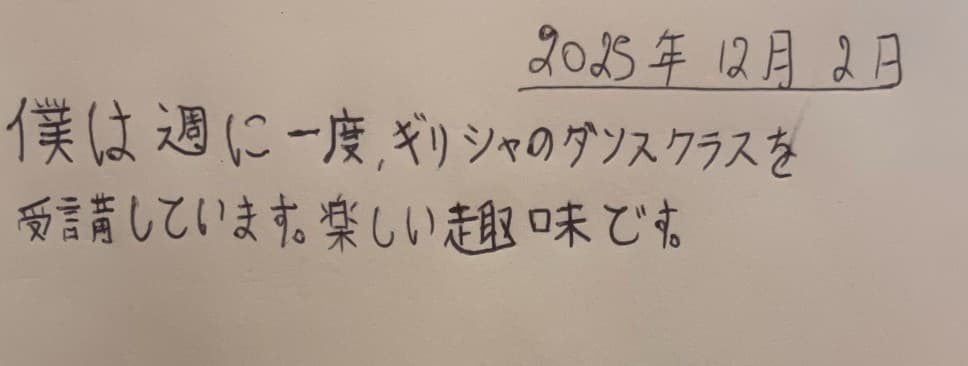 2025年 12月 2日
僕は週に一度,ギリシャのダンスクラスを
受講しています。楽しい趣味です。